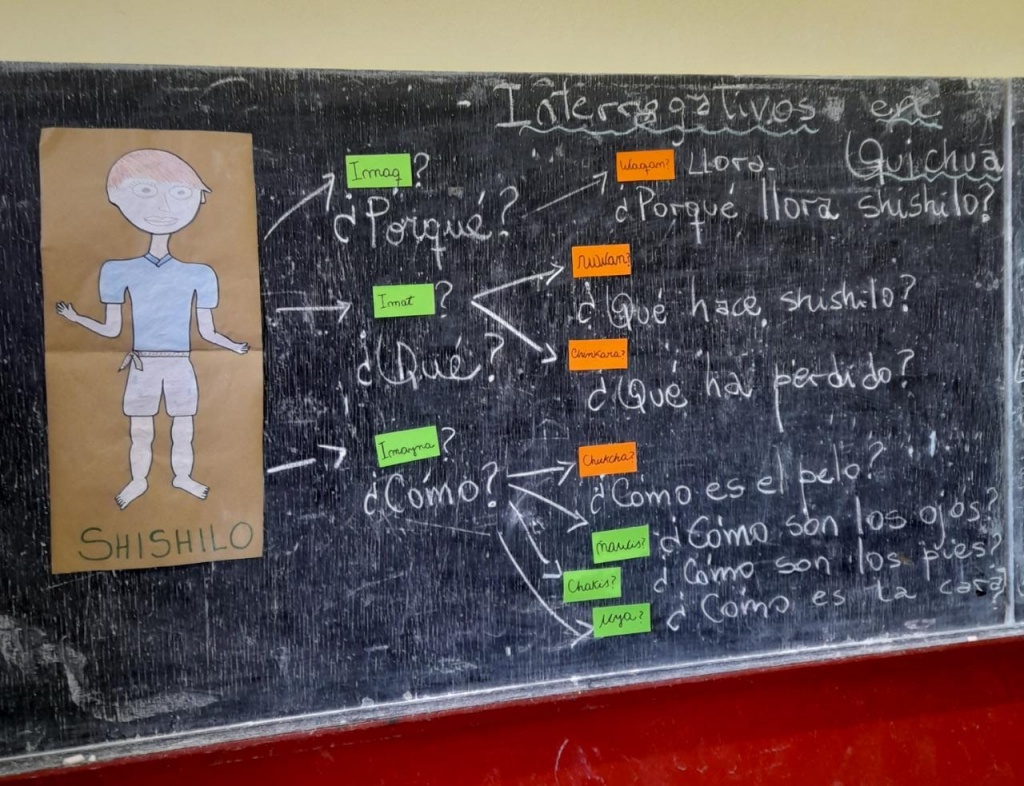 - Interrogativos en
Quichua
Imaq?
¿Porqué?
Waqan? Llora.
¿Porqué llora shishilo?
Imat?
¿Qué?
Ruwan?
¿Qué hace shishilo?
Chinkara?
¿Qué ha perdido?
Imayna?
¿Cómo?
Chukcha?
¿Cómo es el pelo?
Ñawis? ¿Cómo son los ojos?
Chakis? ¿Cómo son los pies?
Uya? ¿Cómo es la cara?
SHISHILO